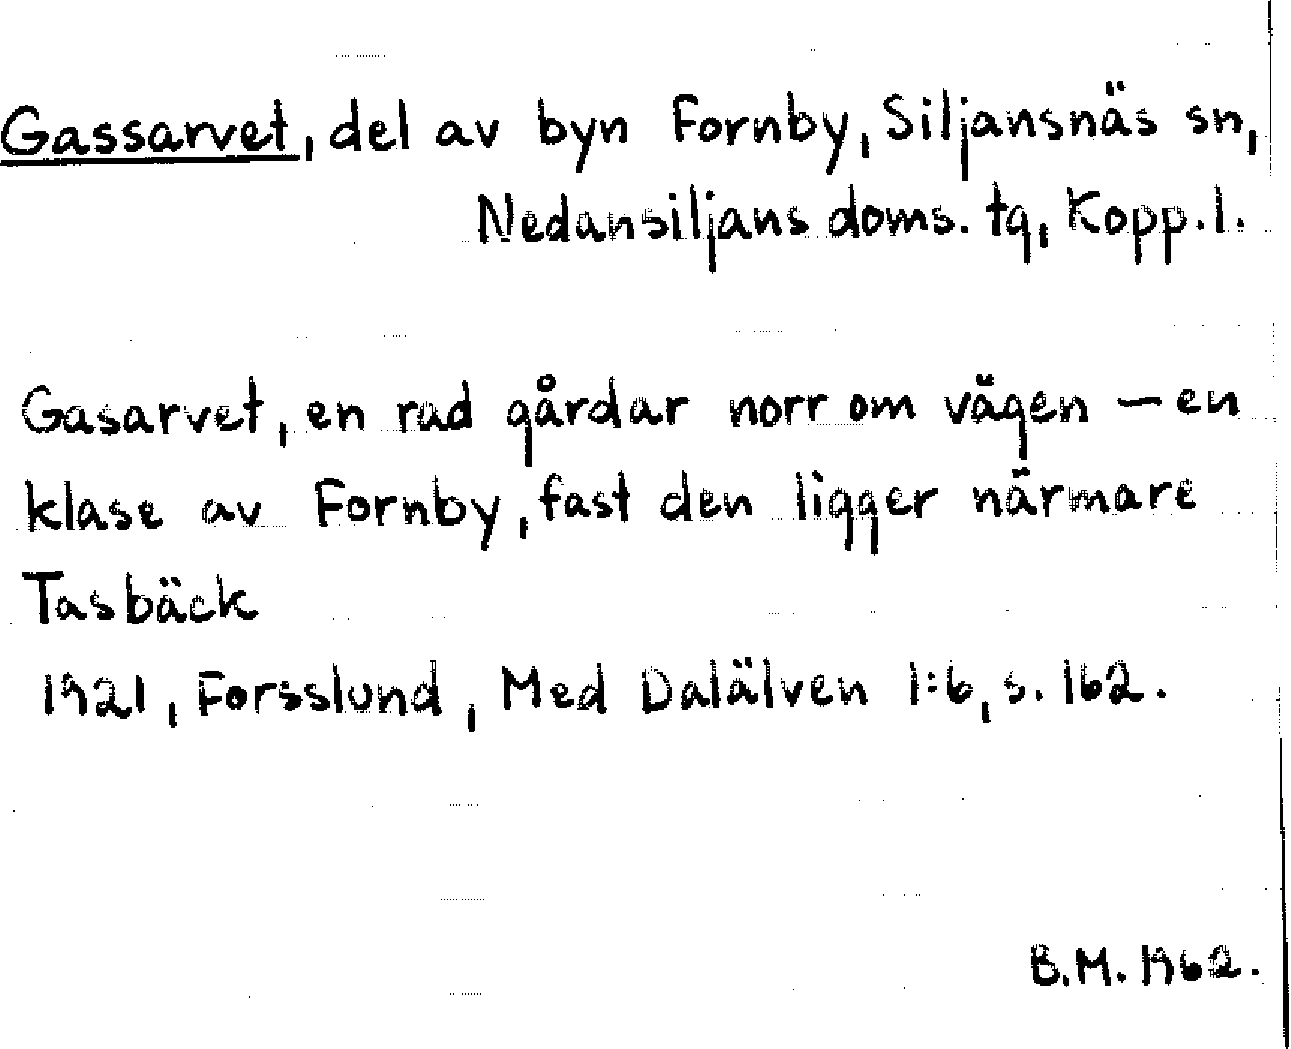 Gassarvet, del av byn Fornby, Siljansnäs sn,
Nedansiljans doms. tg, Kopp. l.
Gasarvet, en rad gårdar norr om vägen – en
klase av Fornby, fast den ligger närmare
Tasbäck
1921, Forsslund, Med Dalälven 1:6, s. 162.
B.M. 1962.